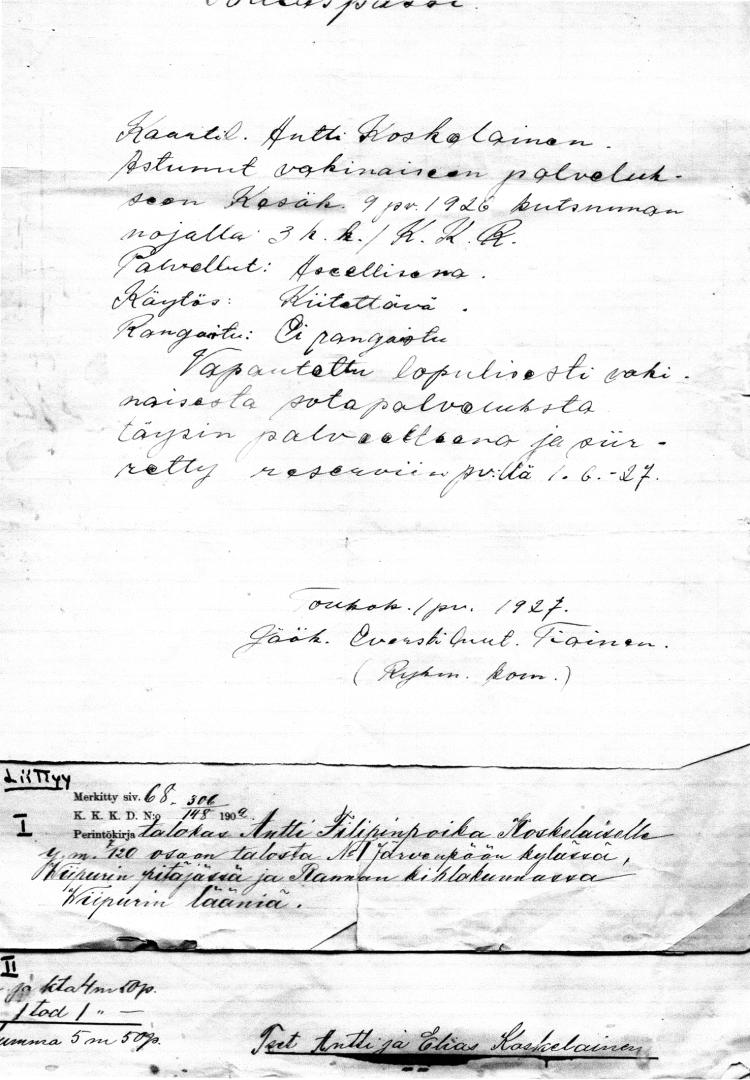 Kaartil. Antti Koskelainen.
Astunut vakinaiseen palveluk-
seen Kesäk. 9 pv. 1926 kutsunnan
nojalla 3 k.k./K.K.R.
Palvellut: Aseellisena.
Käytös: Kiitettävä.
Rangaistu: Ei rangaistu
Vapautettu lopulisesti vaki-
naisesta sotapalveluksta
täysin palvelleena ja siir-
retty reserviin pv:llä 1.6.-27.
Toukok. 1 pv. 1927.
Jääk. Everstiluut. Tiainen.
(Rykm. kom.)
Liittyy
Merkitty siv. 68.
K. K. K. D. N:o 306/148 190
I Perintökirja talokas Antti Filipinpoika Koskelaiselle
y.m. 7/120 osaan talosta No 1 Järvenpään kylässä,
Wiipurin pitäjässä ja Rannan kihlakunnassa
Wiipurin lääniä.
II
ja kta 4 m 50 p.
1 tod 1 " —
summa 5 m 50 p.
Tset Antti ja Elias Koskelainen